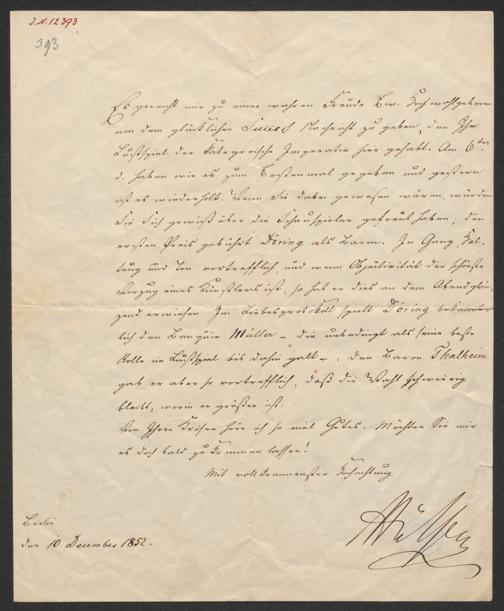 J.N. 12393
393
Es gereicht mir zu einer wahren Freude Ew. Hochwohlgeboren
von dem glücklichen Succes Nachricht zu geben, den Ihr
Lustspiel der Kategorische Imperativ hier gehabt. Am 6ten
d. haben wir es zum Erstenmal gegeben und gestern
ist es wiederholt. Wenn Sie dabei gewesen wären, würden
Sie sich gewiß über die Schauspieler gefreut haben; den
ersten Preis gebührt Döring als Baron. In Gang, Hal-
tung und Ton vortrefflich und wenn Objectivität der schönste
Vorzug eines Künstlers ist, so hat er dies an dem Abend glän-
zend erwiesen. Im Liebesprotokoll spielt Döring bekannt-
lich den Banquier Müller – die unbedingt als seine beste
Rolle im Lustspiel bis dahin galt –, den Baron Thalheim
gab er aber so vortrefflich, daß die Wahl schwierig
bleibt, worin er größer ist.
Von Ihren höre ich so viel Gutes. Möchten Sie mir
es doch bald zukommen lassen!
Mit vollkommenster Hochachtung
Hülsen
Berlin
den 10 December 1852.